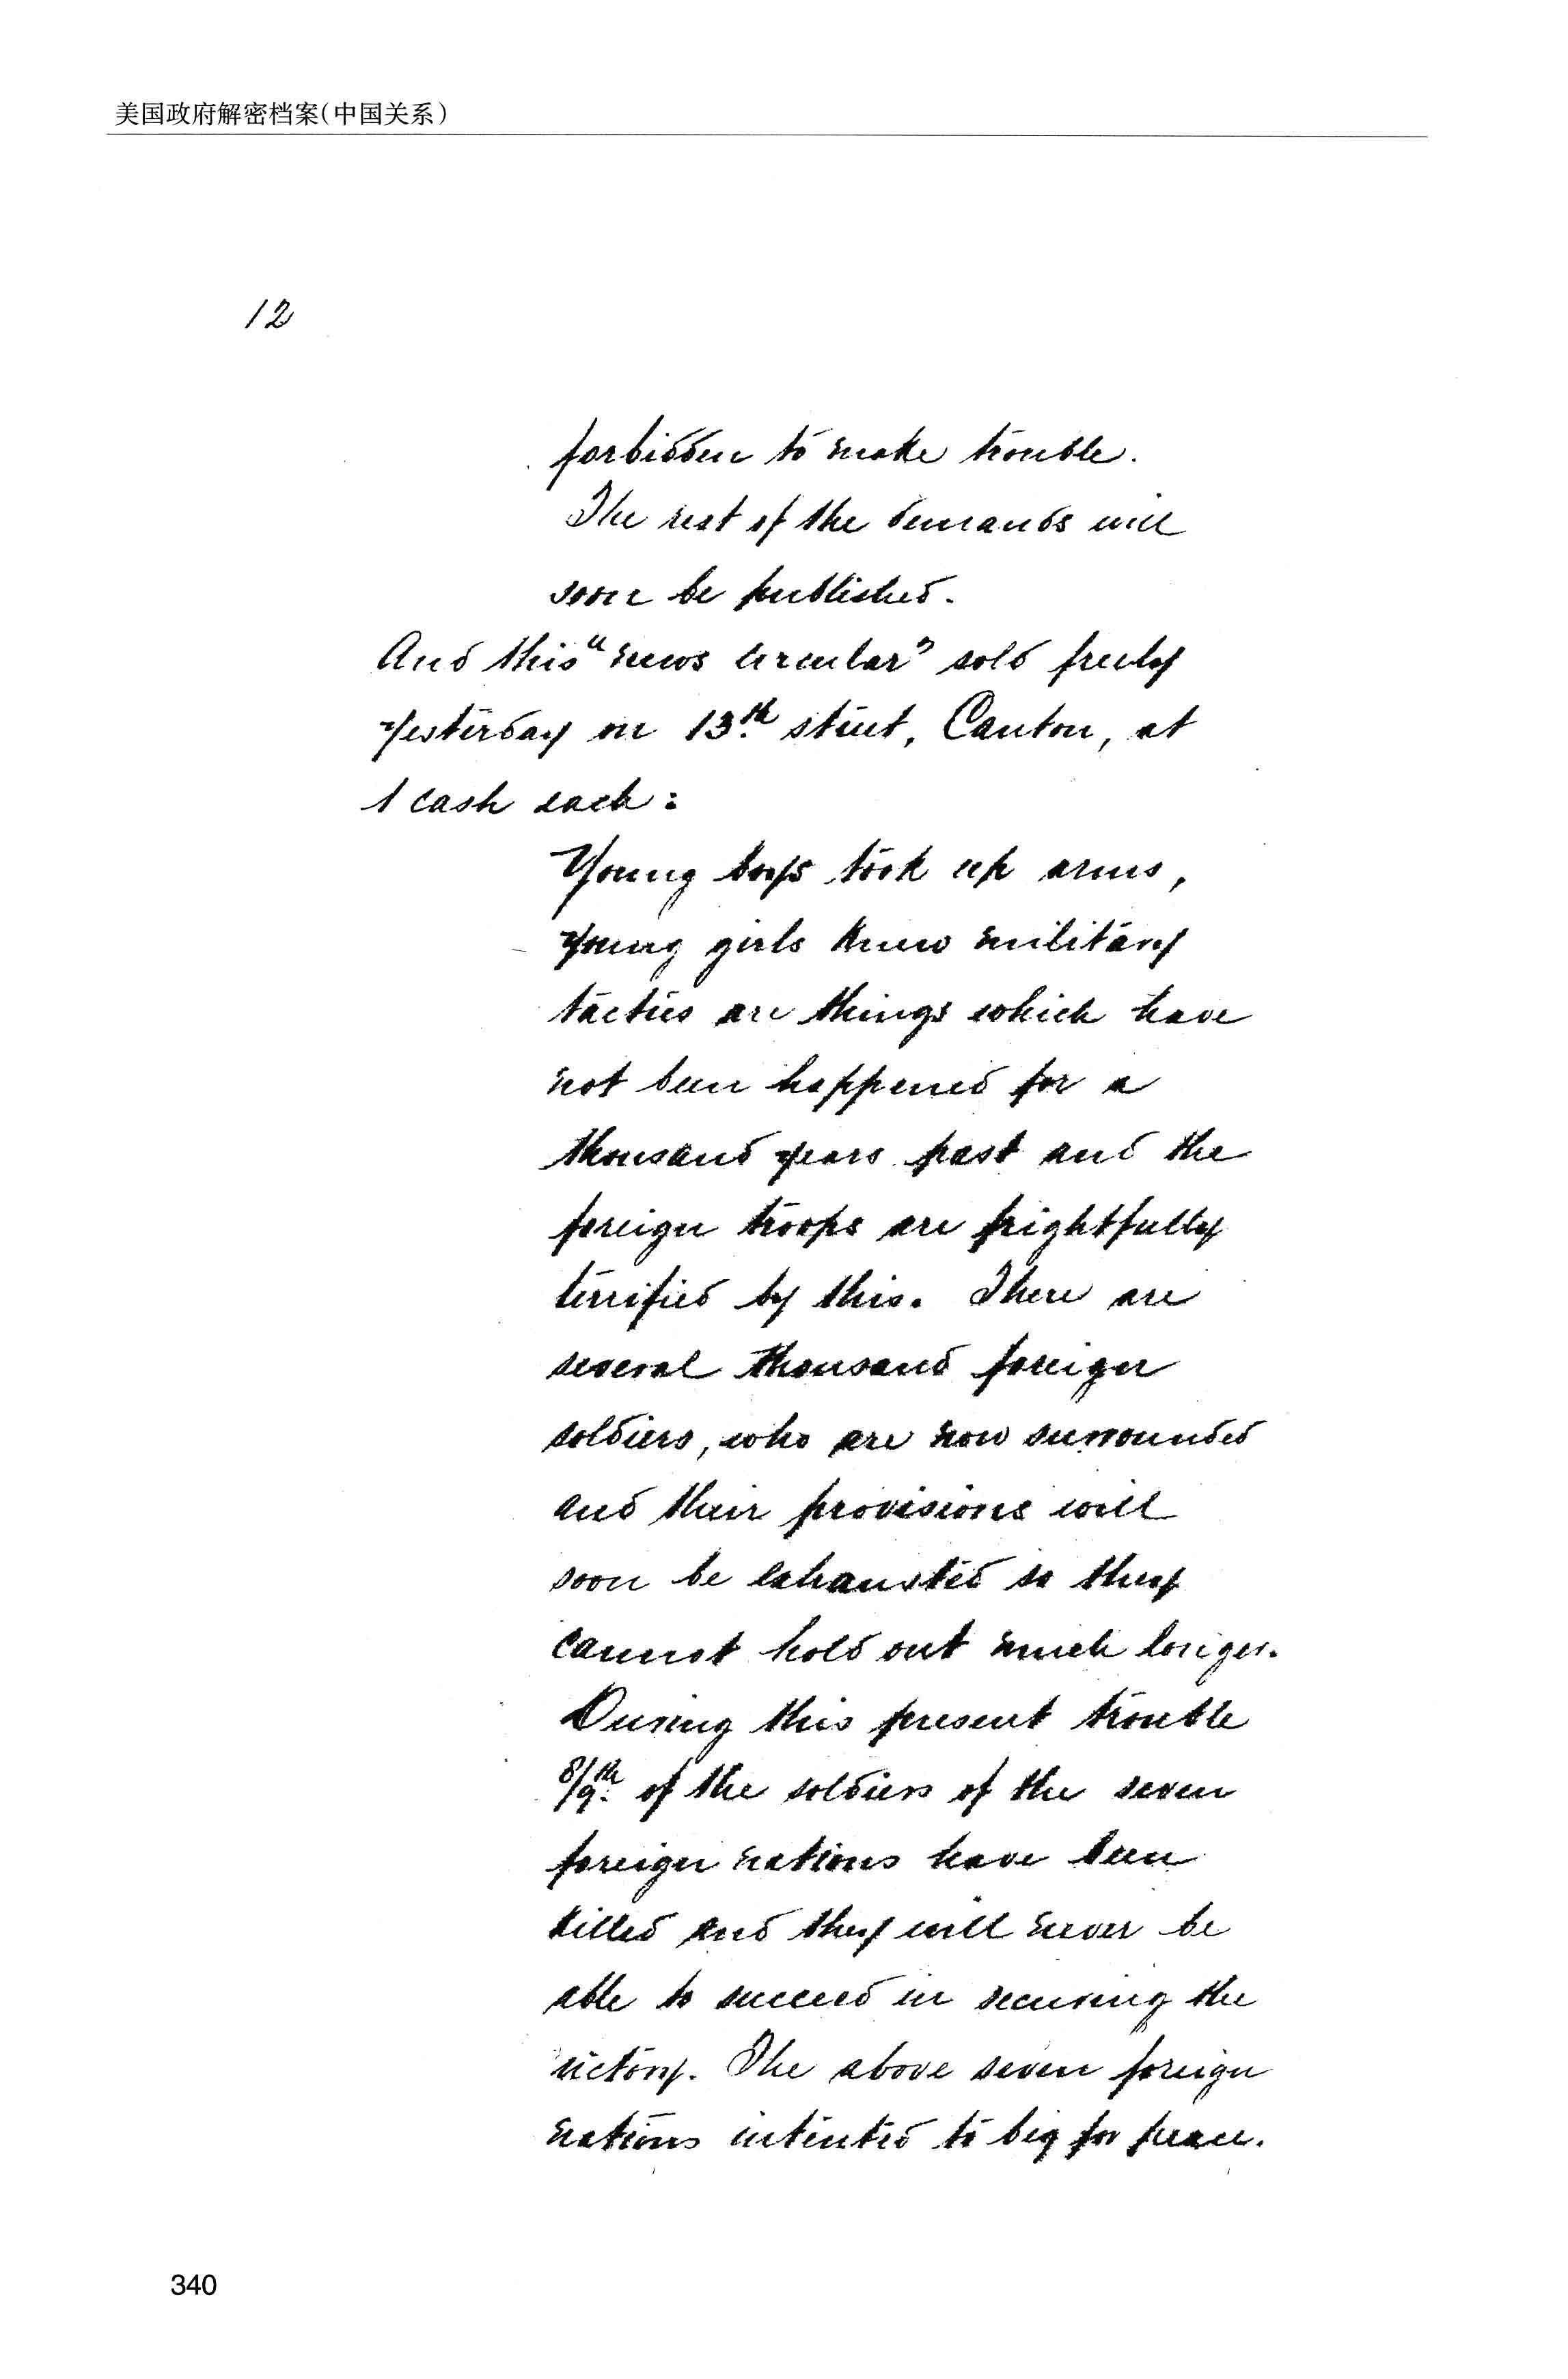 美国政府解密档案(中国关系)
12
forbidden to make trouble.
The rest of the demands will
soon be published.
And this "news circular" sold freely
yesterday on 13th street, Canton, at
1 cash each:
Young boys took up arms,
young girls knew military
tactics are things which have
not been happened for a
thousand years past and the
foreign troops are frightfully
terrified by this. There are
several thousand foreign
soldiers, who are now surrounded
and their provisions will
soon be exhausted so they
cannot hold out much longer.
During this present trouble
8/9th of the soldiers of the seven
foreign nations have been
killed and they will never be
able to succeed in securing the
victory. The above seven foreign
nations intented to beg for peace.
340